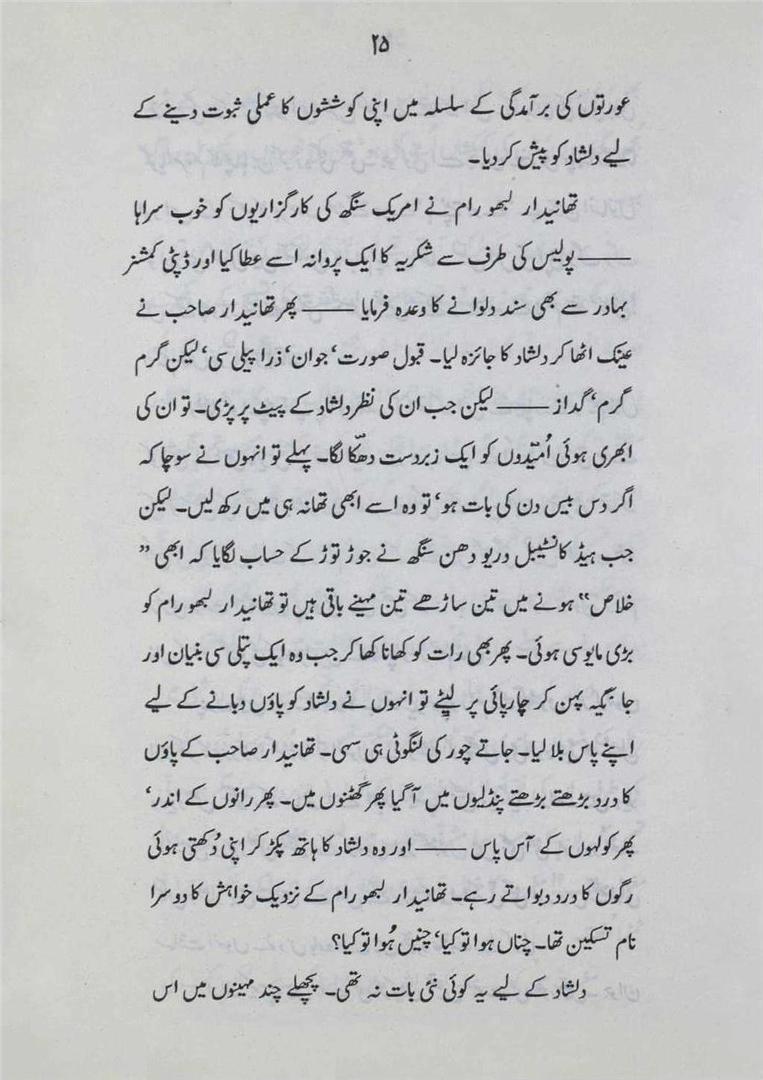 ۲۵
عورتوں کی برآمدگی کے سلسلہ میں اپنی کوششوں کا عملی ثبوت دینے کے
لیے دلشاد کو پیش کر دیا۔
تھانیدار لبھو رام نے امریک سنگھ کی کارگزاریوں کو خوب سراہا
——پولیس کی طرف سے شکریہ کا ایک پروانہ اسے عطا کیا اور ڈپٹی کمشنر
بہادر سے بھی سند دلوانے کا وعدہ فرمایا —— پھر تھانیدار صاحب نے
عینک اٹھا کر دلشاد کا جائزہ لیا۔ قبول صورت، جوان، ذرا پیلی سی، لیکن گرم
گرم، گداز —— لیکن جب ان کی نظر دلشاد کے پیٹ پر پڑی۔ تو ان کی
ابھری ہوئی اُمّیدوں کو ایک زبردست دھکّا لگا۔ پہلے تو انہوں نے سوچا کہ
اگر دس بیس دن کی بات ہو، تو وہ اسے ابھی تھانہ ہی میں رکھ لیں۔ لیکن
جب ہیڈ کانسٹیبل دریودھن سنگھ نے جوڑ توڑ کے حساب لگایا کہ ابھی ”
خلاص“ ہونے میں تین ساڑھے تین مہینے باقی ہیں تو تھانیدار لبھو رام کو
بڑی مایوسی ہوئی۔ پھر بھی رات کو کھانا کھا کر جب وہ ایک پتلی سی بنیان اور
جانگیہ پہن کر چارپائی پر لیٹے تو انہوں نے دلشاد کو پاؤں دبانے کے لیے
اپنے پاس بلا لیا۔ جاتے چور کی لنگوٹی ہی سہی۔ تھانیدار صاحب کے پاؤں
کا درد بڑھتے بڑھتے پنڈلیوں میں آ گیا پھر گھٹنوں میں۔ پھر رانوں کے اندر،
پھر کولہوں کے آس پاس —— اور وہ دلشاد کا ہاتھ پکڑ کر اپنی دُکھتی ہوئی
رگوں کا درد دبواتے رہے۔ تھانیدار لبھو رام کے نزدیک خواہش کا دوسرا
نام تسکین تھا۔ چناں ہوا تو کیا، چنیں ہُوا تو کیا؟
دلشاد کے لیے یہ کوئی نئی بات نہ تھی۔ پچھلے چند مہینوں میں اس